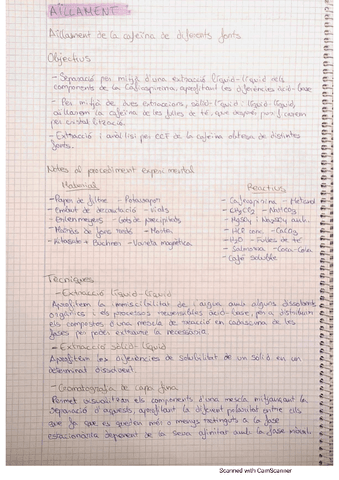 AÏLLAMENT
Aïllament de la cafeïna de diferents fonts
Objectius
- Separació per mitjà d'una extracció líquid-líquid dels
components de la Cafiaspirina, aprofitant les diferències àcid-base
- Per mitjà de dues extraccions, sòlid-líquid i líquid-líquid,
aïllarem la cafeïna de les fulles de té, que després purificarem
per cristal·lització.
- Extracció i anàlisi per CCF de la cafeïna obtesa de distintes
fonts.
Notes al procediment experimental
Material Reactius
- Paper de filtre - Potavapors - Cafiaspirina - Metanol
- Embut de decantació - vials - CH2Cl2 - NaHCO3
- Erlenmeyers - Gots de precipitats - H2SO4 - Na2SO4 anh.
- Matràs de fons rodó - Mantes - HCl conc. - CaCO3
- Kitasato + Büchner - Vareta magnètica - H2O - Fulles de té
- Coca-Cola
- Café soluble
Tècniques
- Extracció líquid-líquid
Aprofitem la immiscibilitat de l'aigua amb alguns dissolvents
orgànics i els processos reversibles àcid-base, per a distribuir
els compostos d'una mescla de reacció en cadascuna de les
fases per poder extraure la necessària.
- Extracció sòlid-líquid
Aprofitem les diferències de solubilitat de un sòlid en un
determinat dissolvent.
- Cromatografia de capa fina
Permet visualitzar els components d'una mescla mitjançant la
separació d'aquests, aprofitant la diferent polaritat entre ells
que fa que es queden més o menys retinguts a la fase
estacionària depenent de la seva afinitat amb la fase mòbil.
Scanned with CamScanner